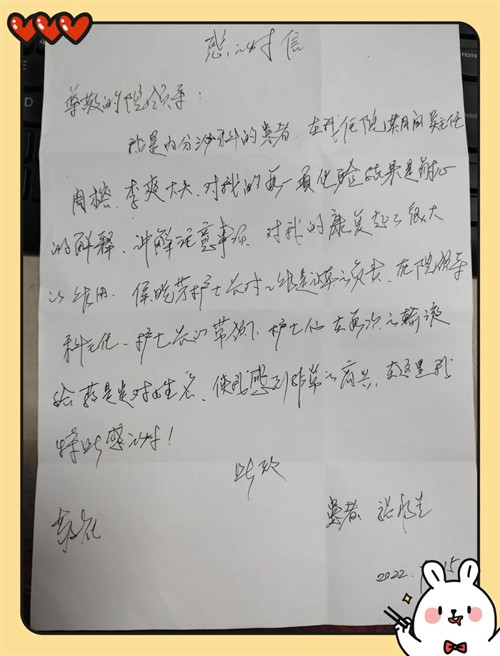 感谢信
尊敬的院领导：
我是内分泌科的患者，在我住院期间吴主任
周楼、李爽大夫、对我的每一项化验结果是耐心
的解释、讲解注意事项，对我的康复起了很大
的作用。侯晓芳护士长对工作是认真负责，在院领导
科主任、护士长的带领下，护士们在每次的输液
给药是是对姓名，使我感到非常的高兴，在这里我
特此感谢！
此致
敬礼
患者：张
2022. 15